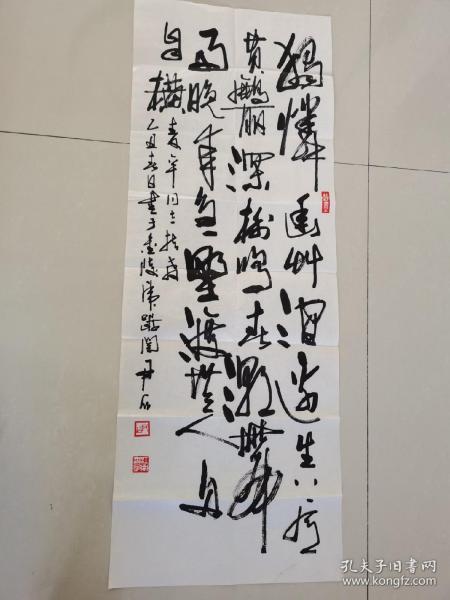 獨憐幽艸澗邊生上有
黄鸝深樹鳴春潮帶
雨晚來急野渡無人舟
自橫 年同志指
乙丑春日書于金陵虎踞關
孔夫子旧书网
www.kongfz.com